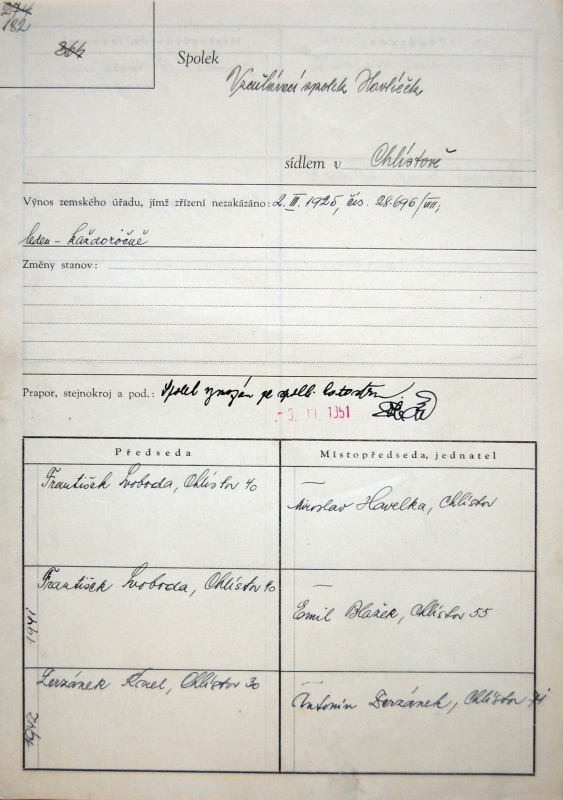 274
182
866
Spolek
Vzdělávací spolek Havlíček
sídlem v Chlístově
Výnos zemského úřadu, jímž zřízení nezakázáno: 2. III. 1925, čís. 28.696/VIII;
leden - každoročně
Změny stanov:
Prapor, stejnokroj a pod.: Spolek vymazán ze spolk. katastru
- 3. 11. 1951
Předseda
Místopředseda, jednatel
František Svoboda, Chlístov 40
Miroslav Havelka, Chlístov
1941
František Svoboda, Chlístov 40
Emil Blažek, Chlístov 55
1942
Zerzánek Karel, Chlístov 30
Antonín Zerzánek, Chlístov 71